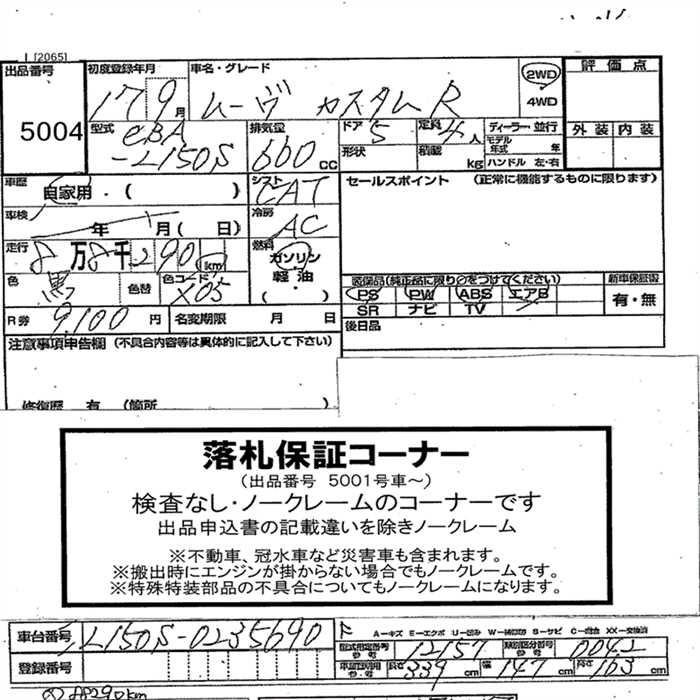 [2065]
出品番号 5004
初度登録年月 17 9月
車名・グレード ムーヴ カスタム R
2WD
4WD
評価点
外装 内装
型式 CBA
-L150S
排気量 660 cc
ドア 5
形状
定員 4人
積載 kg
ディーラー 並行
モデル年式 年
ハンドル 左・右
車歴 自家用・( )
シフト CAT
セールスポイント (正常に機能するものに限ります)
車検 年 月( 日)
冷房 AC
走行 8万8千290 km
燃料 ガソリン
軽・油
・( )
色 黒
色替
色コード X05
装備品(純正品に限り○をつけてください)
PS PW ABS エアB
SR ナビ TV
新車保証書
有・無
後日品
R券 9,100 円
名変期限 月 日
注意事項申告欄 (不具合内容等は具体的に記入して下さい)
修復歴 有 (箇所 )
落札保証コーナー
(出品番号 5001号車~)
検査なし・ノークレームのコーナーです
出品申込書の記載違いを除きノークレーム
※不動車、冠水車など災害車も含まれます。
※搬出時にエンジンが掛からない場合でもノークレームです。
※特殊特装部品の不具合についてもノークレームになります。
車台番号 L150S-0235690
登録番号
A-キズ E-エクボ U-凹み W-補修跡 S-サビ C-腐食 XX-交換済
型式指定番号 12157
類別区分番号 0042
長さ 339 cm 幅 147 cm 高さ 163 cm